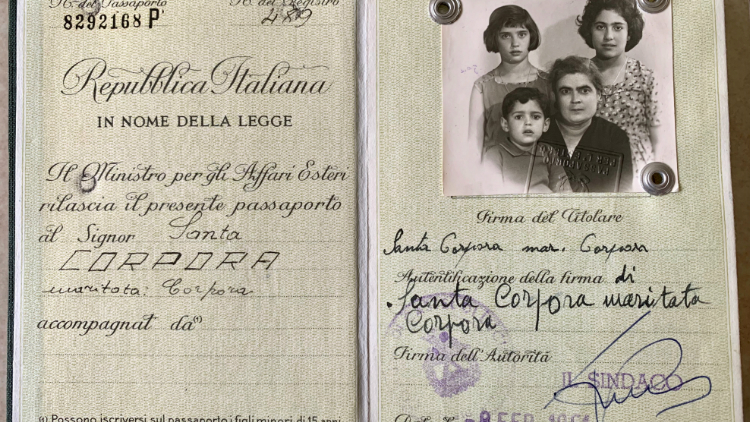 N. del Passaporto
N. del Registro
8292168 P
489
Repubblica Italiana
IN NOME DELLA LEGGE
Il Ministro per gli Affari Esteri
rilascia il presente passaporto
al Signor Santa
CORPORA
maritata: Corpora
accompagnat da(1)
(1) Possono iscriversi sul passaporto i figli minori di 15 anni
Firma del Titolare
Santa Corpora mar. Corpora
Autentificazione della firma di
Santa Corpora maritata
Corpora
Firma dell'Autorità
IL SINDACO
FEB.